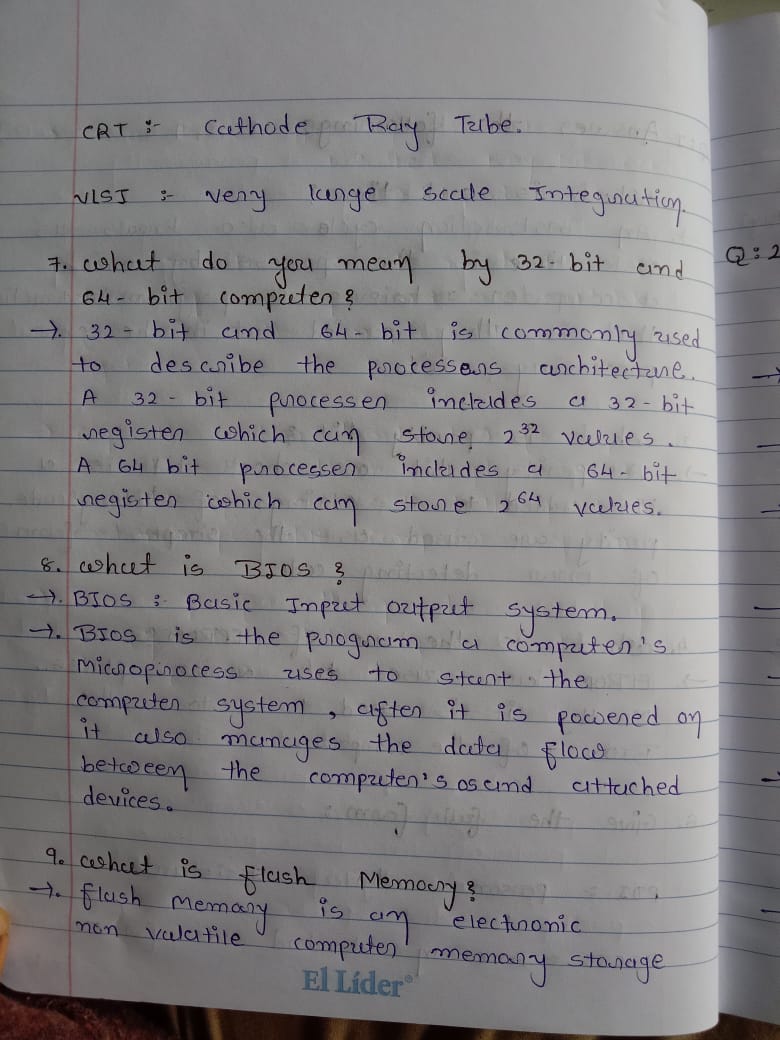 CRT :- Cathode Ray Tube.
VLSI :- very large scale Integration.
7. what do you mean by 32-bit and
64-bit computer?
→. 32-bit and 64-bit is commonly used
to describe the processers architecture.
A 32-bit processer includes a 32-bit
register which can store 2^32 values.
A 64 bit processer includes a 64-bit
register which can store 2^64 values.
8. what is BIOS ?
→. BIOS : Basic Input output system.
→. BIOS is the program a computer's
Microprocess uses to start the
computer system, after it is powered on
it also manages the data flow
between the computer's os and attached
devices.
9. what is flash Memory?
→. flash memory is an electronic
non valatile computer memory storage
El Líder
Q:2